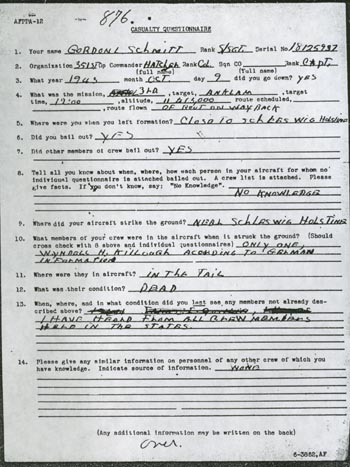 AFPPA-12
876.
CASUALTY QUESTIONNAIRE
1. Your name GORDON L Schmitt Rank S/SGT. Serial No
2. Organization 351ST Gp Commander HATCHER Rank Col Sqn CO Rank CAPT.
(full name) (full name)
3. What year 1943 month OCT day 9 did you go down? YES
4. What was the mission, 3RD, target, ANKLAM, target
time, altitude, route scheduled,
route flown OF ROUT ON WAY BACK
5. Where were you when you left formation? Close to SCHLESWIG HOLSTINE
6. Did you bail out? YES
7. Did other members of crew bail out? YES
8. Tell all you know about when, where, how each person in your aircraft for whom no
individual questionnaire is attached bailed out. A crew list is attached. Please
give facts. If you don't know, say: "No Knowledge".
NO KNOWLEDGE
9. Where did your aircraft strike the ground? NEAR SCHLESWIG HOLSTINE
10. What members of your crew were in the aircraft when it struck the ground? (Should
cross check with 8 above and individual questionnaires) ONLY ONE,
WYNDELL H. KILLOUGH ACORDING TO GERMAN
INFORMATION
11. Where were they in aircraft? IN THE TAIL
12. What was their condition? DEAD
13. When, where, and in what condition did you last see any members not already des-
cribed above?
I HAVE HEARD FROM ALL CREW MEMBERS
HELD IN THE STATES.
14. Please give any similar information on personnel of any other crew of which you
have knowledge. Indicate source of information. NONE
(Any additional information may be written on the back)
over.
6-3862,AF